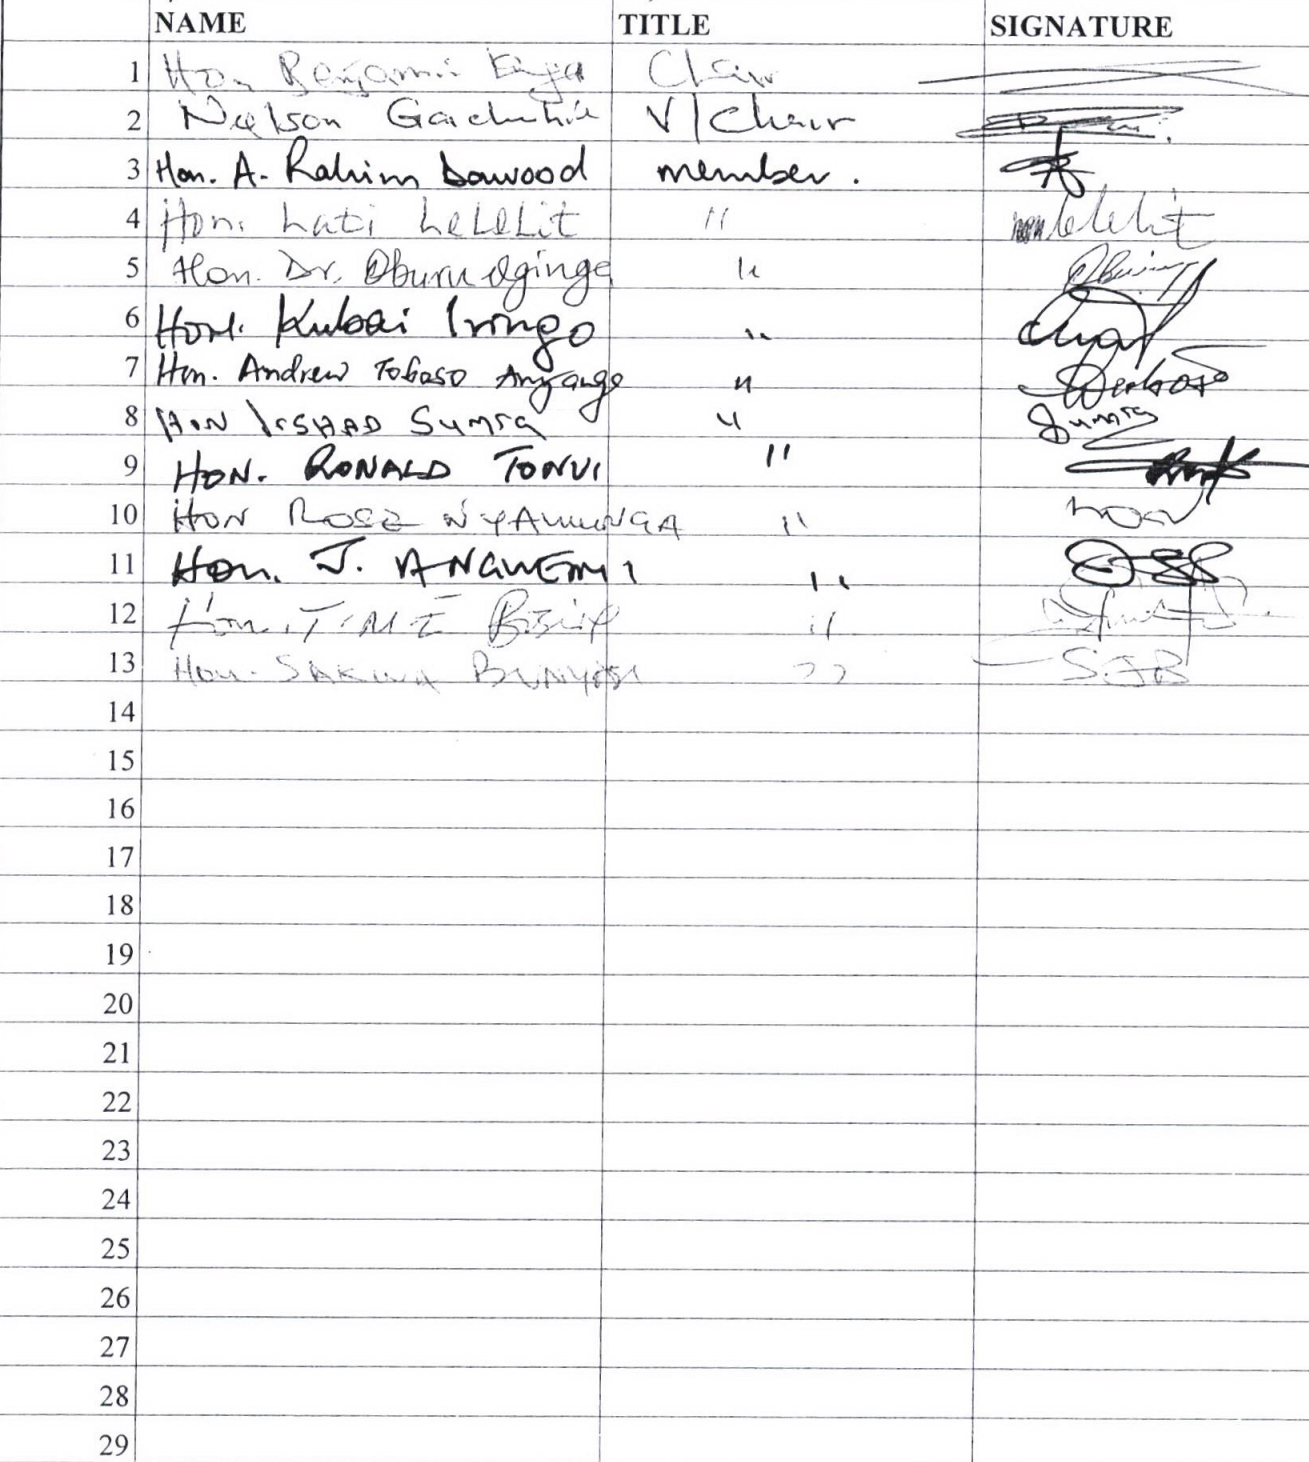 NAME TITLE SIGNATURE
1 Hon. Benjamin Chair
2 Nelson Gachuhie V/Chair
3 Hon. A. Rahim Dawood member.
4 Hon. Lati LeLeLit " Lelelit
5 Hon. Dr. Oburu Oginga "
6 Hon. Kubai Iringo "
7 Hon. Andrew Toboso Anyango "
8 HON IRSHAD Sumra " Sumra
9 HON. RONALD TONUI "
10 HON ROSE NYAMUNGA "
11 Hon. J. ANGWENYI "
12 Hon. "
13 Hon. SAKWA BUNYASI " SJB
14
15
16
17
18
19
20
21
22
23
24
25
26
27
28
29